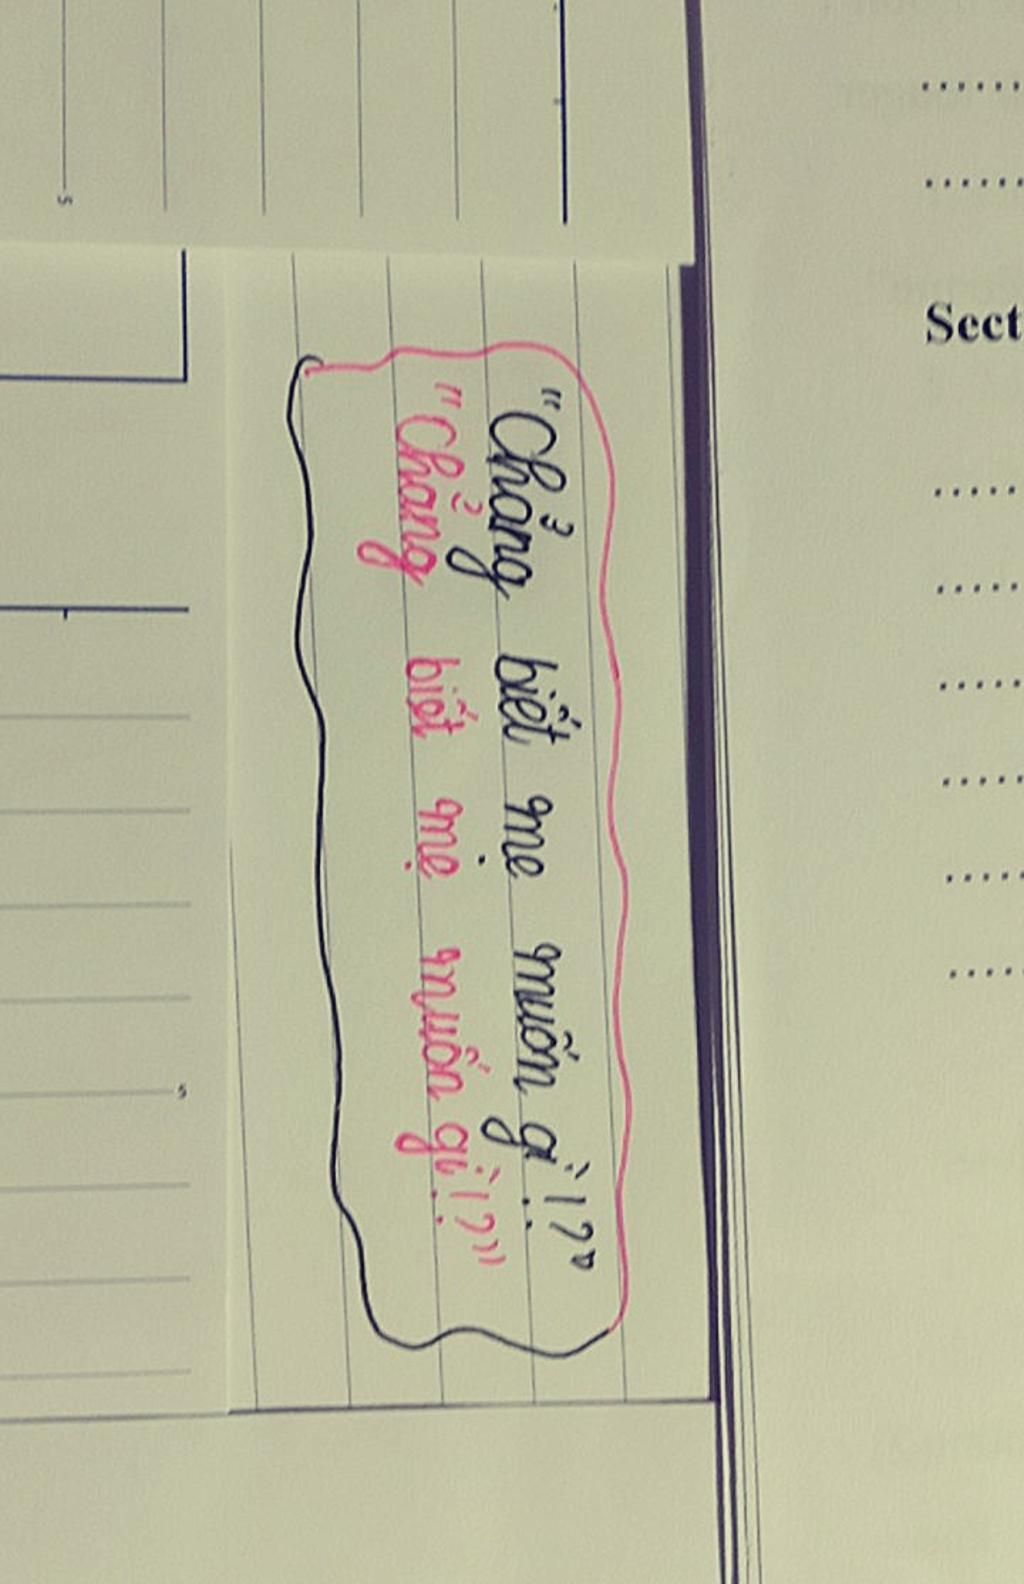 "Chẳng biết mẹ muốn gì!?"
"Chẳng biết mẹ muốn gì!?"
Sect
5
5